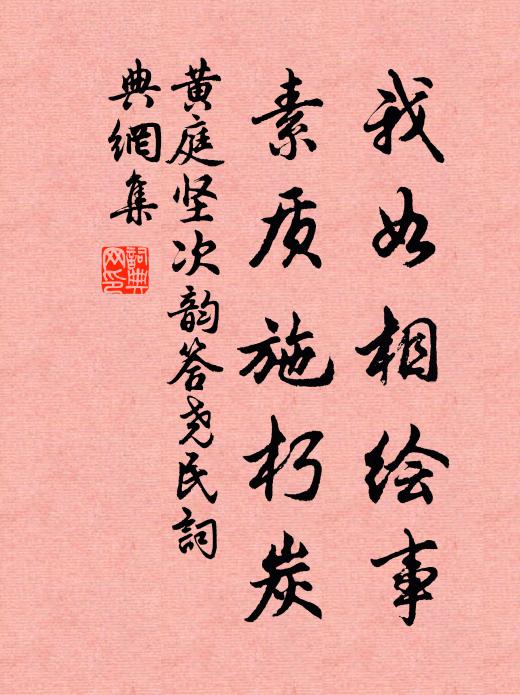 我如相绘事
素质施朽炭
黄庭坚次韵答尧民詞
典網集
詞典
网印